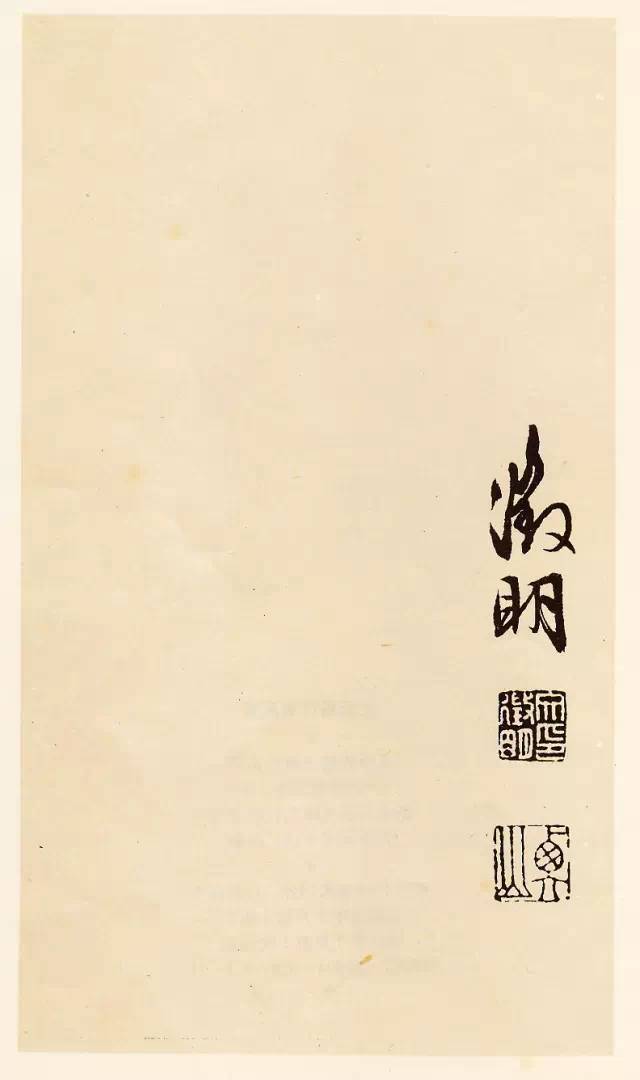 徵明
文徵明印
衡山